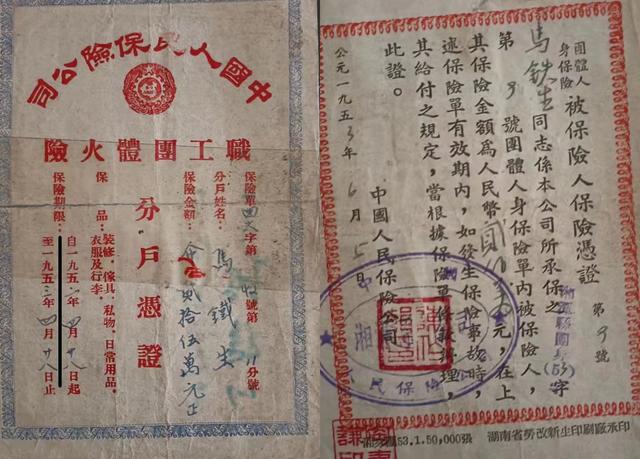 中國人民保險公司
職工團體火險
分戶憑證
保險單
字第
號第
分號
分戶姓名：馬鐵生
保險金額：
貳拾伍萬元正
保品：裝修．傢具．私物．日常用品．衣服及行李．
保險期限：自一九五二年四月廿八日起
至一九五三年四月廿八日止
團體人身保險被保險人保險憑證
第9號
馬鉄生同志係本公司所承保之
(53)字
第9號團體人身保險單內被保險人，
其保險金額為人民幣
元，在上
述保險單有效期內，如發生保險事故時，
其給付之規定，當根據保險單條款辦理，
此證。
中國人民保險公司
公元一九五三年6月5日
53.1.50,000張
湖南省勞改新生印刷廠承印